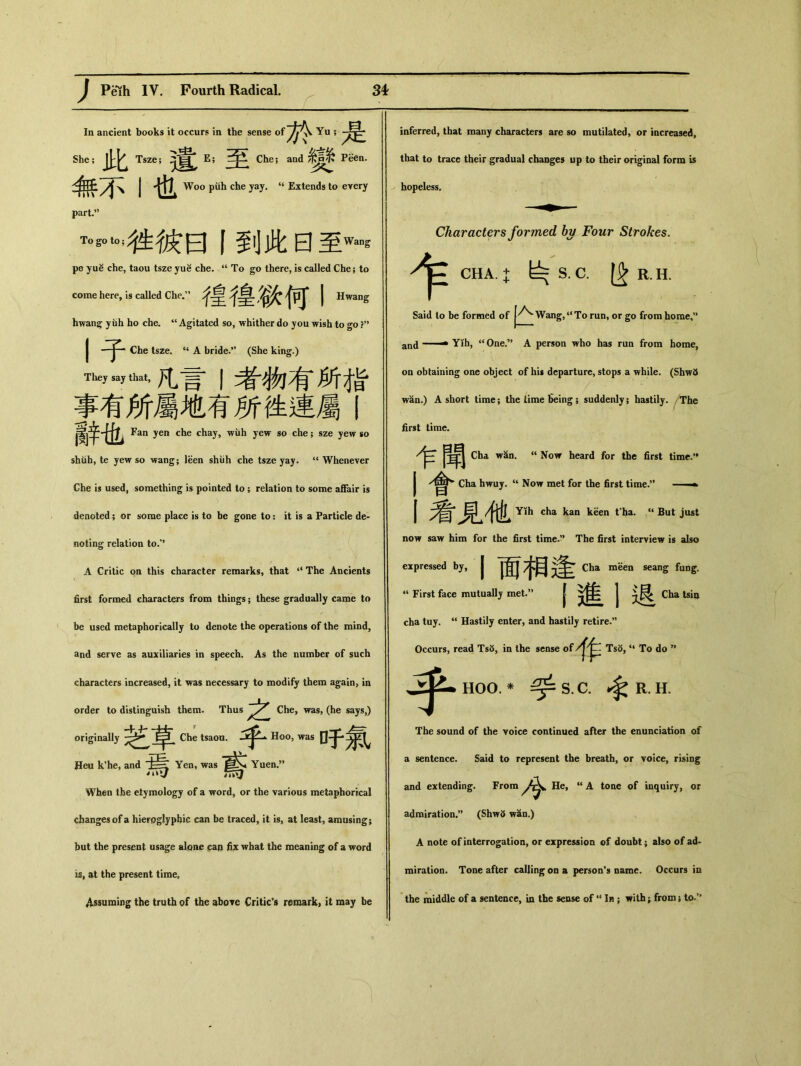 丿 Peïh IV. Fourth Radical. 34
In ancient books it occurs in the sense of 於 Yu; 是
She; 此 Tsze; 遺 E; 至 Che; and 變 Pëen.
無不｜也 Woo pŭh che yay. “ Extends to every
part.”
To go to; 徃彼曰｜到此曰至 Wang
pe yuĕ che, taou tsze yuĕ che. “ To go there, is called Che; to
come here, is called Che.” 徨徨欲何｜ Hwang
hwang yŭh ho che. “ Agitated so, whither do you wish to go?”
｜子 Che tsze. “ A bride.” (She king.)
They say that, 凡言｜者物有所指
事有所屬地有所徃連屬｜
辭也 Fan yen che chay, wŭh yew so che; sze yew so
shŭh, te yew so wang; lëen shŭh che tsze yay. “ Whenever
Che is used, something is pointed to; relation to some affair is
denoted; or some place is to be gone to: it is a Particle de-
noting relation to.”
A Critic on this character remarks, that “ The Ancients
first formed characters from things; these gradually came to
be used metaphorically to denote the operations of the mind,
and serve as auxiliaries in speech. As the number of such
characters increased, it was necessary to modify them again, in
order to distinguish them. Thus 之 Che, was, (he says,)
originally 芝草 Che tsaou. 乎 Hoo, was 吁氣
Heu k'he, and 焉 Yen, was 鳶 Yuen.”
When the etymology of a word, or the various metaphorical
changes of a hieroglyphic can be traced, it is, at least, amusing;
but the present usage alone can fix what the meaning of a word
is, at the present time.
Assuming the truth of the above Critic's remark, it may be
inferred, that many characters are so mutilated, or increased,
that to trace their gradual changes up to their original form is
hopeless.
Characters formed by Four Strokes.
乍 CHA. ‡ S. C. R. H.
Said to be formed of 亾 Wang, “ To run, or go from home,”
and 一 Yĭh, “ One.” A person who has run from home,
on obtaining one object of his departure, stops a while. (Shwŏ
wăn.) A short time; the time being; suddenly; hastily. The
first time.
乍聞 Cha wăn. “ Now heard for the first time.”
｜會 Cha hwuy. “ Now met for the first time.” 一
｜看見他 Yĭh cha kan këen t'ha. “ But just
now saw him for the first time.” The first interview is also
expressed by, ｜面相逢 Cha mëen seang fung.
“ First face mutually met.” ｜進｜退 Cha tsin
cha tuy. “ Hastily enter, and hastily retire.”
Occurs, read Tsŏ, in the sense of 作 Tsŏ, “ To do ”
乎 HOO. * S. C. R. H.
The sound of the voice continued after the enunciation of
a sentence. Said to represent the breath, or voice, rising
and extending. From 兮 He, “ A tone of inquiry, or
admiration.” (Shwŏ wăn.)
A note of interrogation, or expression of doubt; also of ad-
miration. Tone after calling on a person's name. Occurs in
the middle of a sentence, in the sense of “ In; with; from; to.”